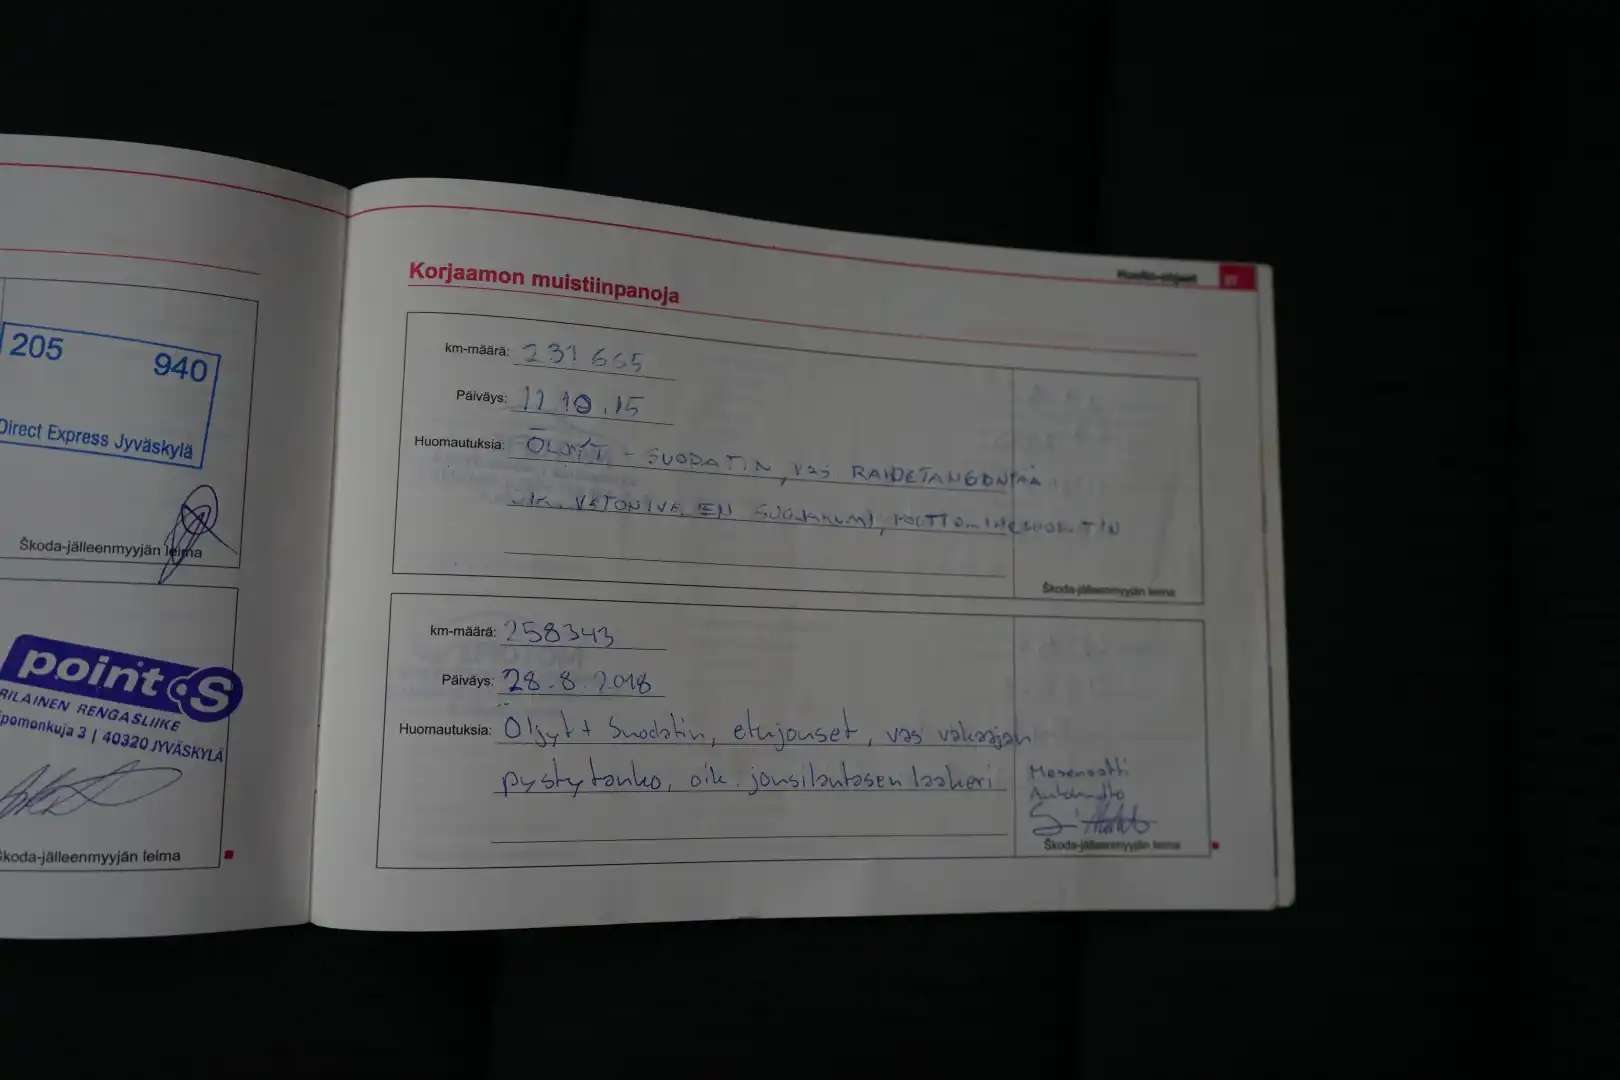 205 940
Direct Express Jyväskylä
Škoda-jälleenmyyjän leima
point S
RILAINEN RENGASLIIKE
pomonkuja 3 | 40320 JYVÄSKYLÄ
Škoda-jälleenmyyjän leima
Huolto-ohjeet
Korjaamon muistiinpanoja
km-määrä: 231 665
Päiväys: 11.10.15
Huomautuksia: ÖLJYT + SUODATIN, vas RAIDETANGONPÄÄ
OIK. VETONIVELEN SUOJAKUMI, POLTTOAINESUODATIN
Škoda-jälleenmyyjän leima
km-määrä: 258343
Päiväys: 28.8.2018
Huomautuksia: Öljyt + Suodatin, etujouset, vas vakaajan
pystytanko, oik. jousilautasen laakeri
Mesenaatti
Autohuolto
Škoda-jälleenmyyjän leima